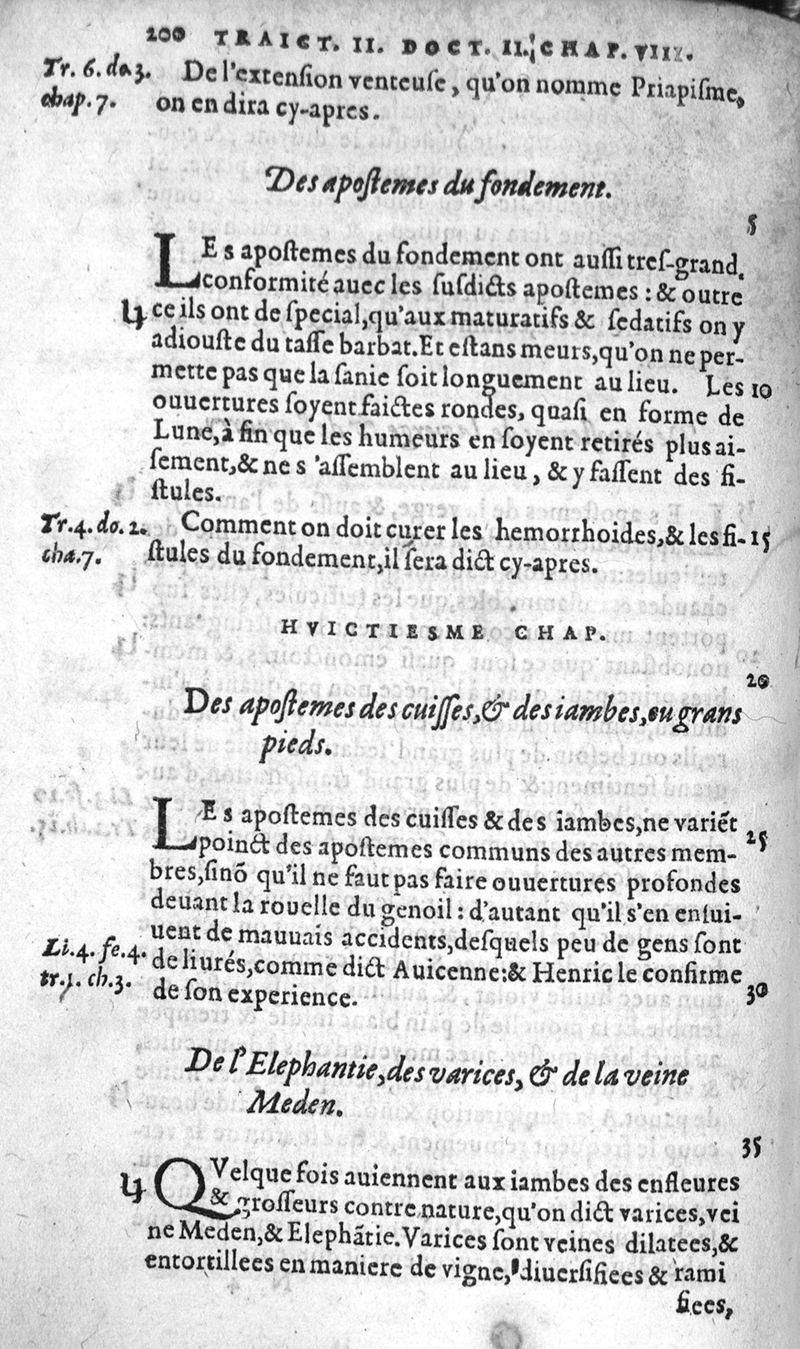 200 TRAICT. II. DOCT. II. CHAP. VIII.
Tr. 6. do. 3. De l'extenſion venteuſe, qu'on nomme Priapiſme,
chap. 7. on en dira cy-apres.
Des apoſtemes du fondement.
5
LEs apoſtemes du fondement ont auſſi treſ-grand
conformité auec les ſuſdicts apoſtemes : & outre
ce ils ont de ſpecial, qu'aux maturatifs & ſedatifs on y
adiouſte du taſſe barbat. Et eſtans meurs, qu'on ne per-
mette pas que la ſanie ſoit longuement au lieu. Les 10
ouuertures ſoyent faictes rondes, quaſi en forme de
Lune, à fin que les humeurs en ſoyent retirés plus ai-
ſement, & ne s'aſſemblent au lieu, & y faſſent des fi-
ſtules.
Tr. 4. do. 2. Comment on doit curer les hemorrhoides, & les fi- 15
cha. 7. ſtules du fondement, il ſera dict cy-apres.
HVICTIESME CHAP.
20
Des apoſtemes des cuiſſes, & des iambes, ou grans
pieds.
LEs apoſtemes des cuiſſes & des iambes, ne variẽt
poinct des apoſtemes communs des autres mem- 25
bres, ſinõ qu'il ne faut pas faire ouuertures profondes
deuant la rouelle du genoil : d'autant qu'il s'en enſui-
uent de mauuais accidents, deſquels peu de gens ſont
Li. 4. fe. 4. deliurés, comme dict Auicenne: & Henric le confirme
tr. 1. ch. 3. de ſon experience. 30
De l'Elephantie, des varices, & de la veine
Meden.
35
QVelque fois auiennent aux iambes des enfleures
& groſſeurs contre nature, qu'on dict varices, vei
ne Meden, & Elephãtie. Varices ſont veines dilatees, &
entortillees en maniere de vigne, diuerſifiees & rami
fiees,